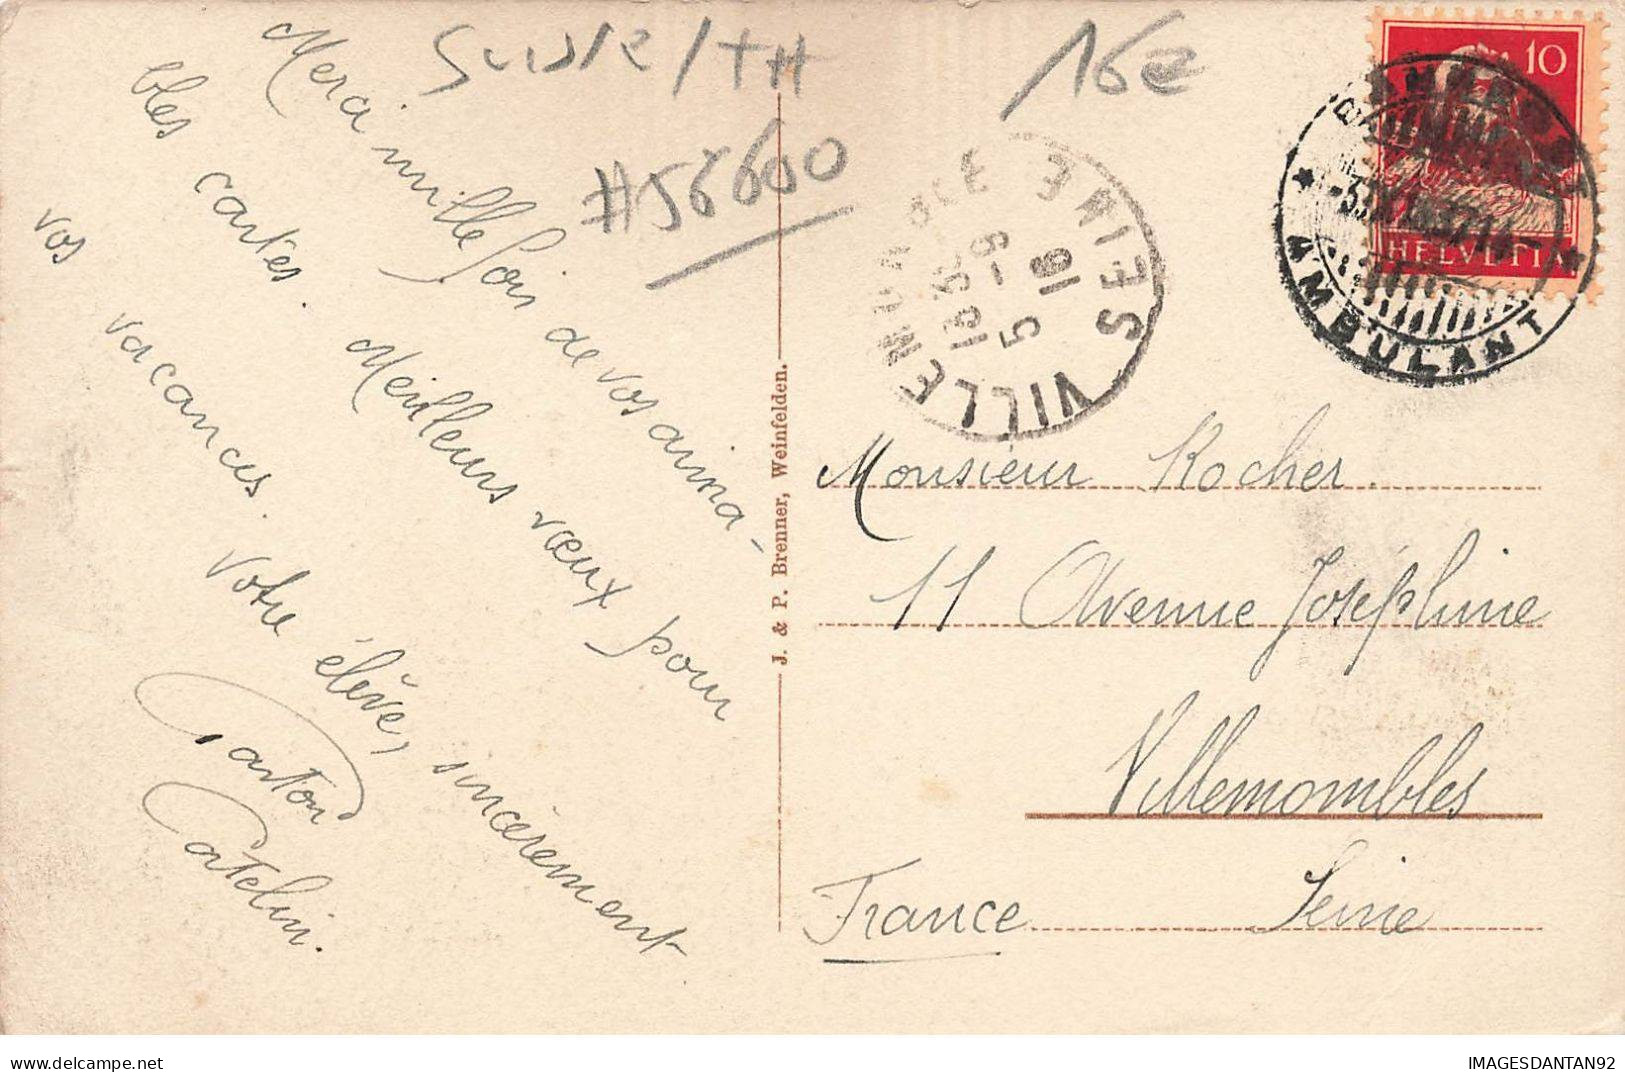 Suisse/TH
16e
#58600
Merci mille fois de vos aima-
bles cartes. Meilleurs vœux pour
vos vacances.
Votre élève, sincèrement
Gaston
Catelin.
J. & P. Brenner, Weinfelden.
VILLEMOMBLE SEINE
16 - 9
5
1935
10
HELVETIA
AMBULANT
Monsieur Rocher.
11 Avenue Joséphine
Villemombles
France Seine
delcampe.net
IMAGESDANTAN92